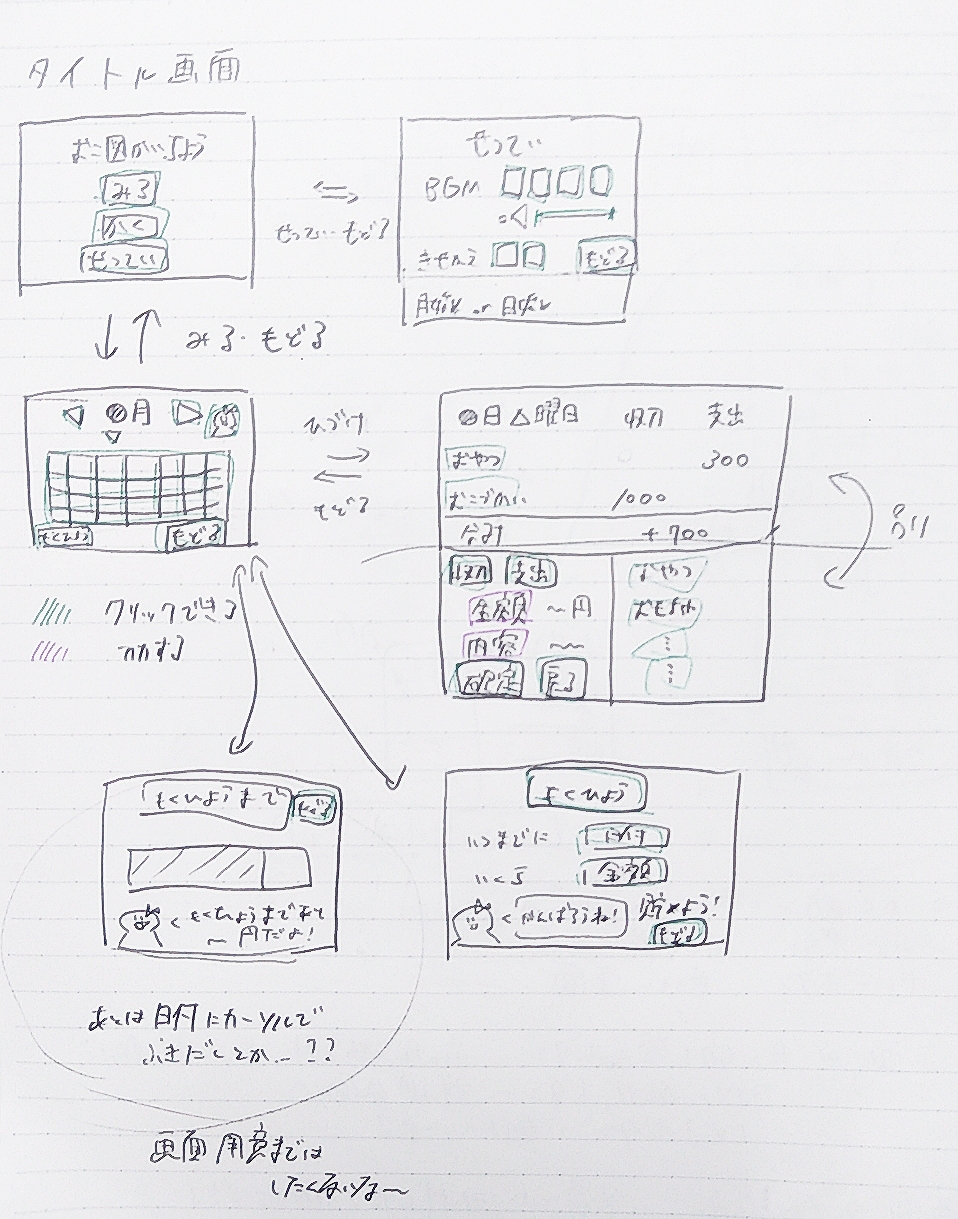 タイトル画面
おこづかいちょう
みる
かく
せってい
せってい・もどる
せってい
BGM
きせかえ
もどる
月ずれ or 日ずれ
みる・もどる
月
もくひょう
もどる
ひづけ
もどる
日 曜日 収入 支出
おやつ 300
おこづかい 1000
合計 +700
別
収入 支出
金額 〜円
内容 〜
確定 戻る
おやつ
おもちゃ
クリックできる
入力する
もくひょうまで
もどる
もくひょうまであと
〜円だよ!
もくひょう
いつまでに 日付
いくら 金額
がんばろうね!
貯めよう!
もどる
あとは日付にカーソルで
ふきだしとか…??
画面用意までは
したくないな〜